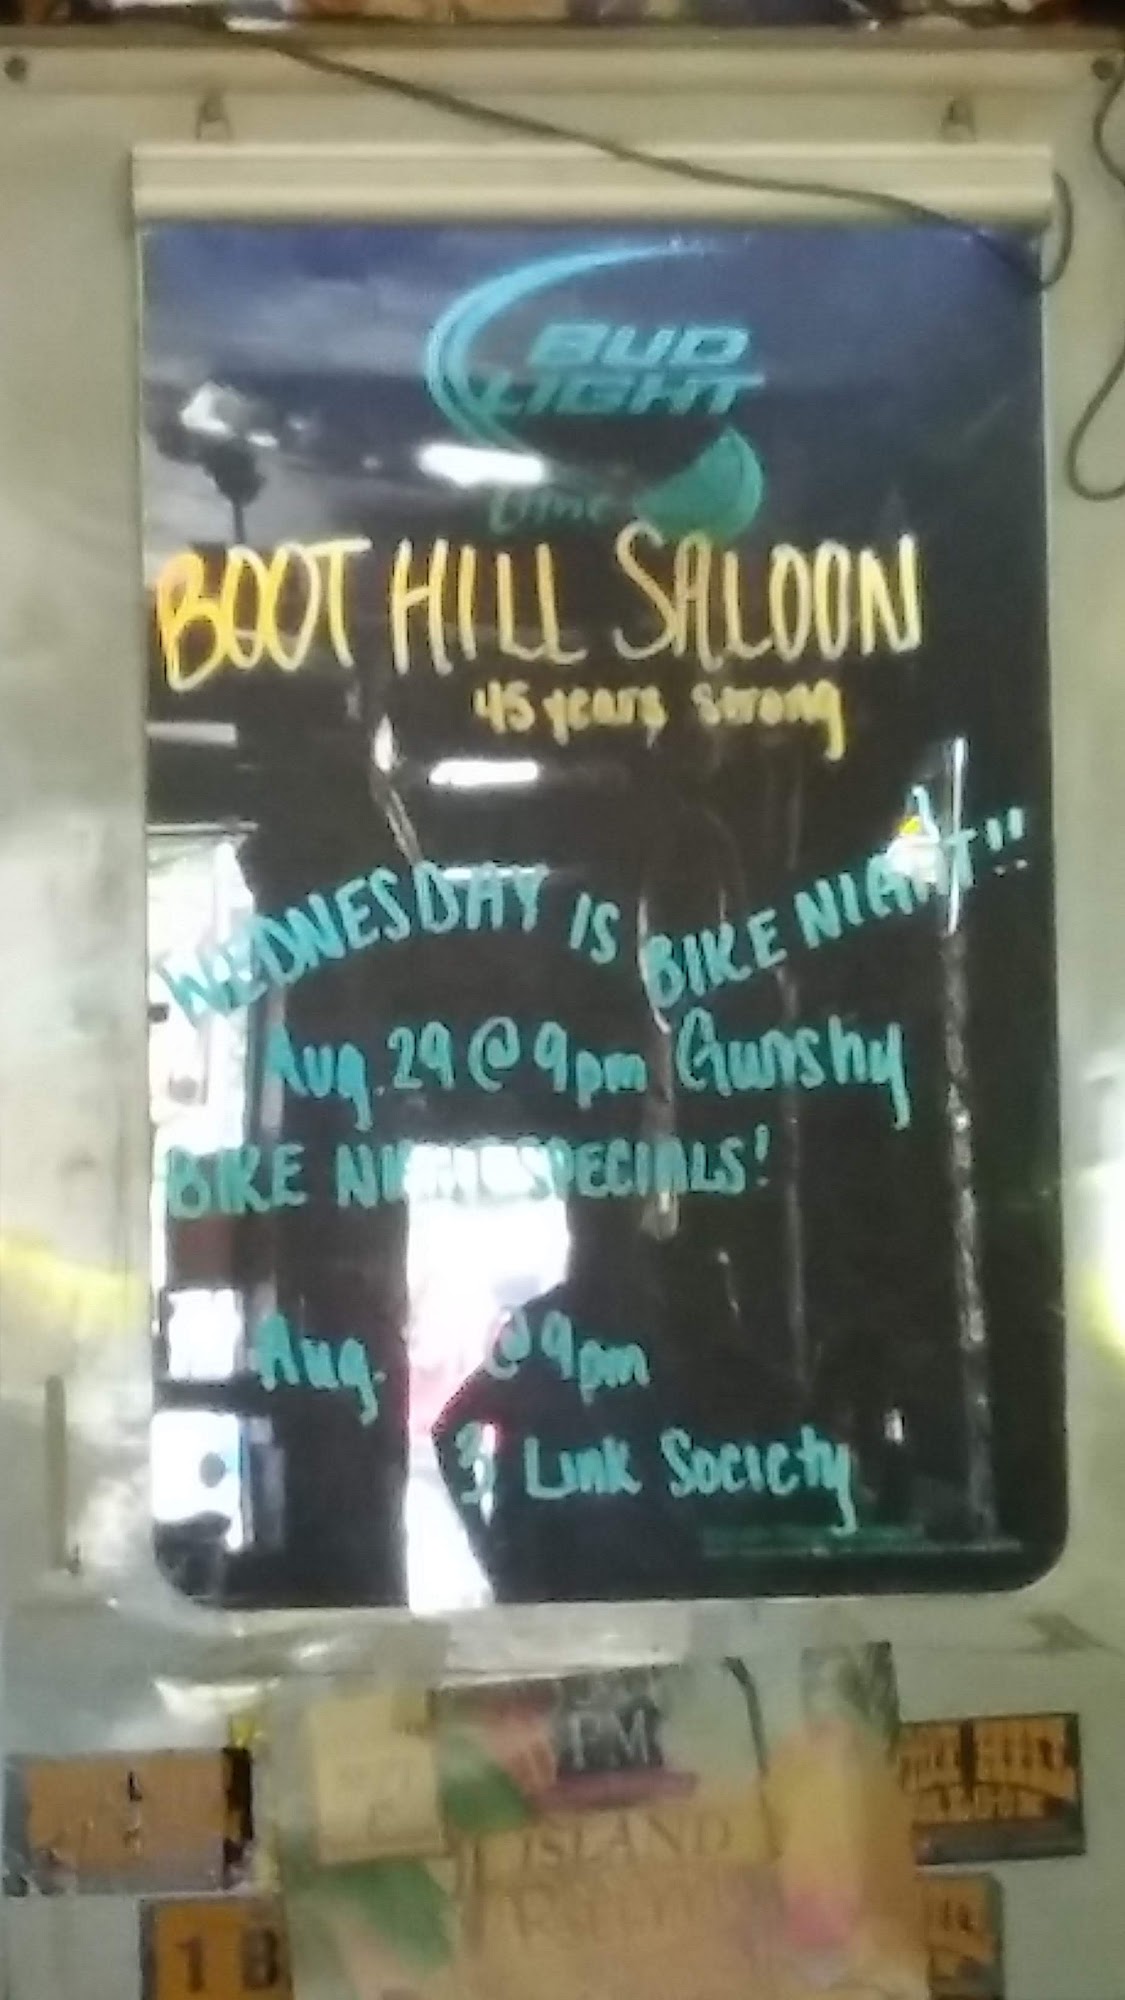 BUD
LIGHT
Lime
BOOT HILL SALOON
45 years strong
WEDNESDAY IS BIKE NIGHT!!
Aug. 29 @ 9pm Gunshy
BIKE NIGHT SPECIALS!
Aug. @ 9pm
3 Link Society
PM
ISLAND
HILL
SALOON
1 B